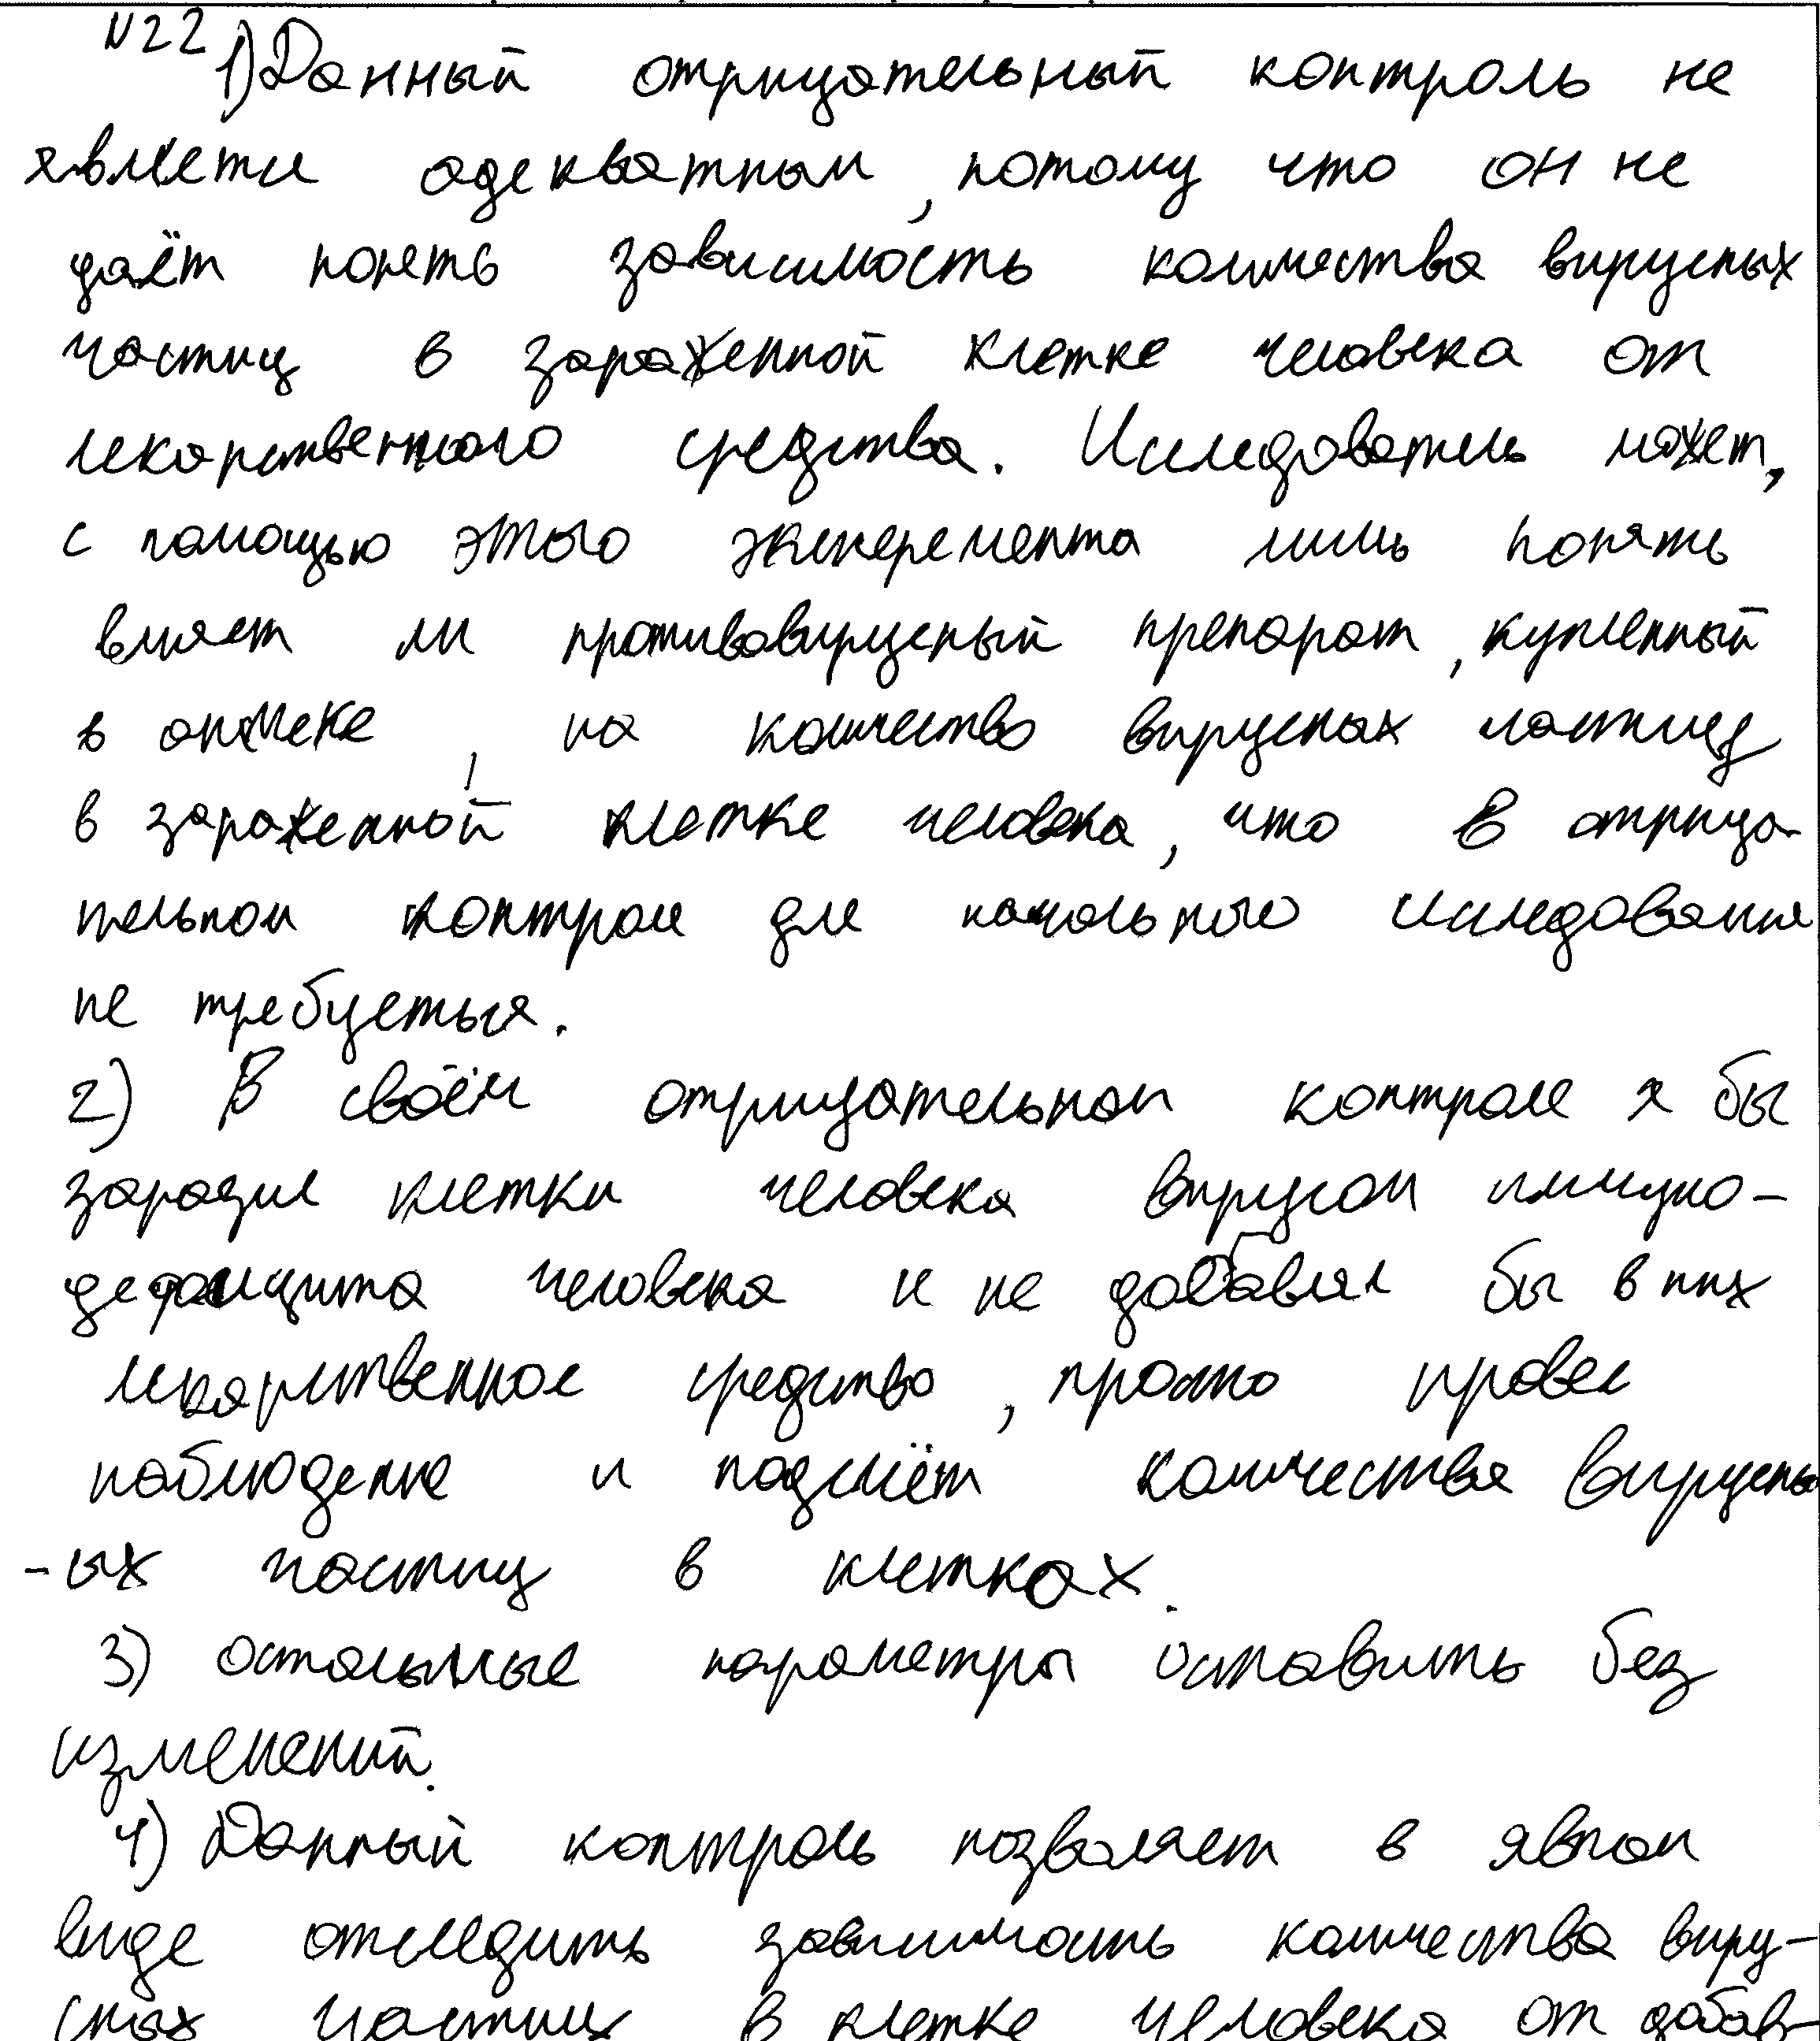 N22 1) Данный отрицательный контроль не
является адекватным, потому что он не
даёт понять зависимость количества вирусных
частиц в заражённой клетке человека от
лекарственного средства. Исследователь может,
с помощью этого эксперемента лишь понять
влияет ли противовирусный препарат, купленный
в аптеке, на количество вирусных частиц
в зараженной клетке человека, что в отрица-
тельном контроле для начального исследования
не требуеться.
2) В своём отрицательном контроле я бы
заразил клетки человека вирусом иммуно-
дефицита человека и не добавлял бы в них
лекарственное средство, просто провел
наблюдение и подсчёт количества вирусн
-ых частиц в клетках.
3) остальные параметры оставить без
изменений.
4) Данный контроль позволяет в явном
виде отследить зависимость количества виру-
сных частиц в клетке человека от добав-